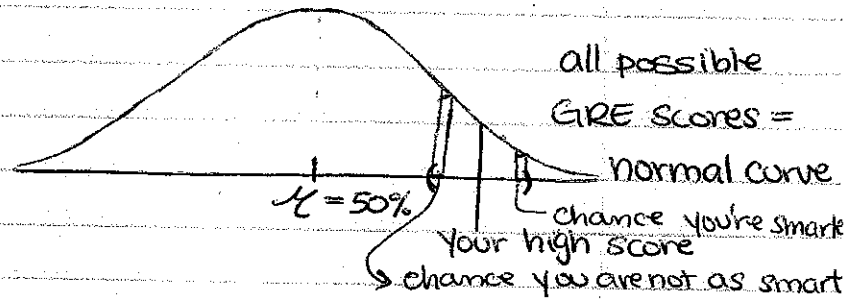 all possible
GRE scores =
normal curve
μ = 50%
chance you're smarte
your high score
chance you are not as smart